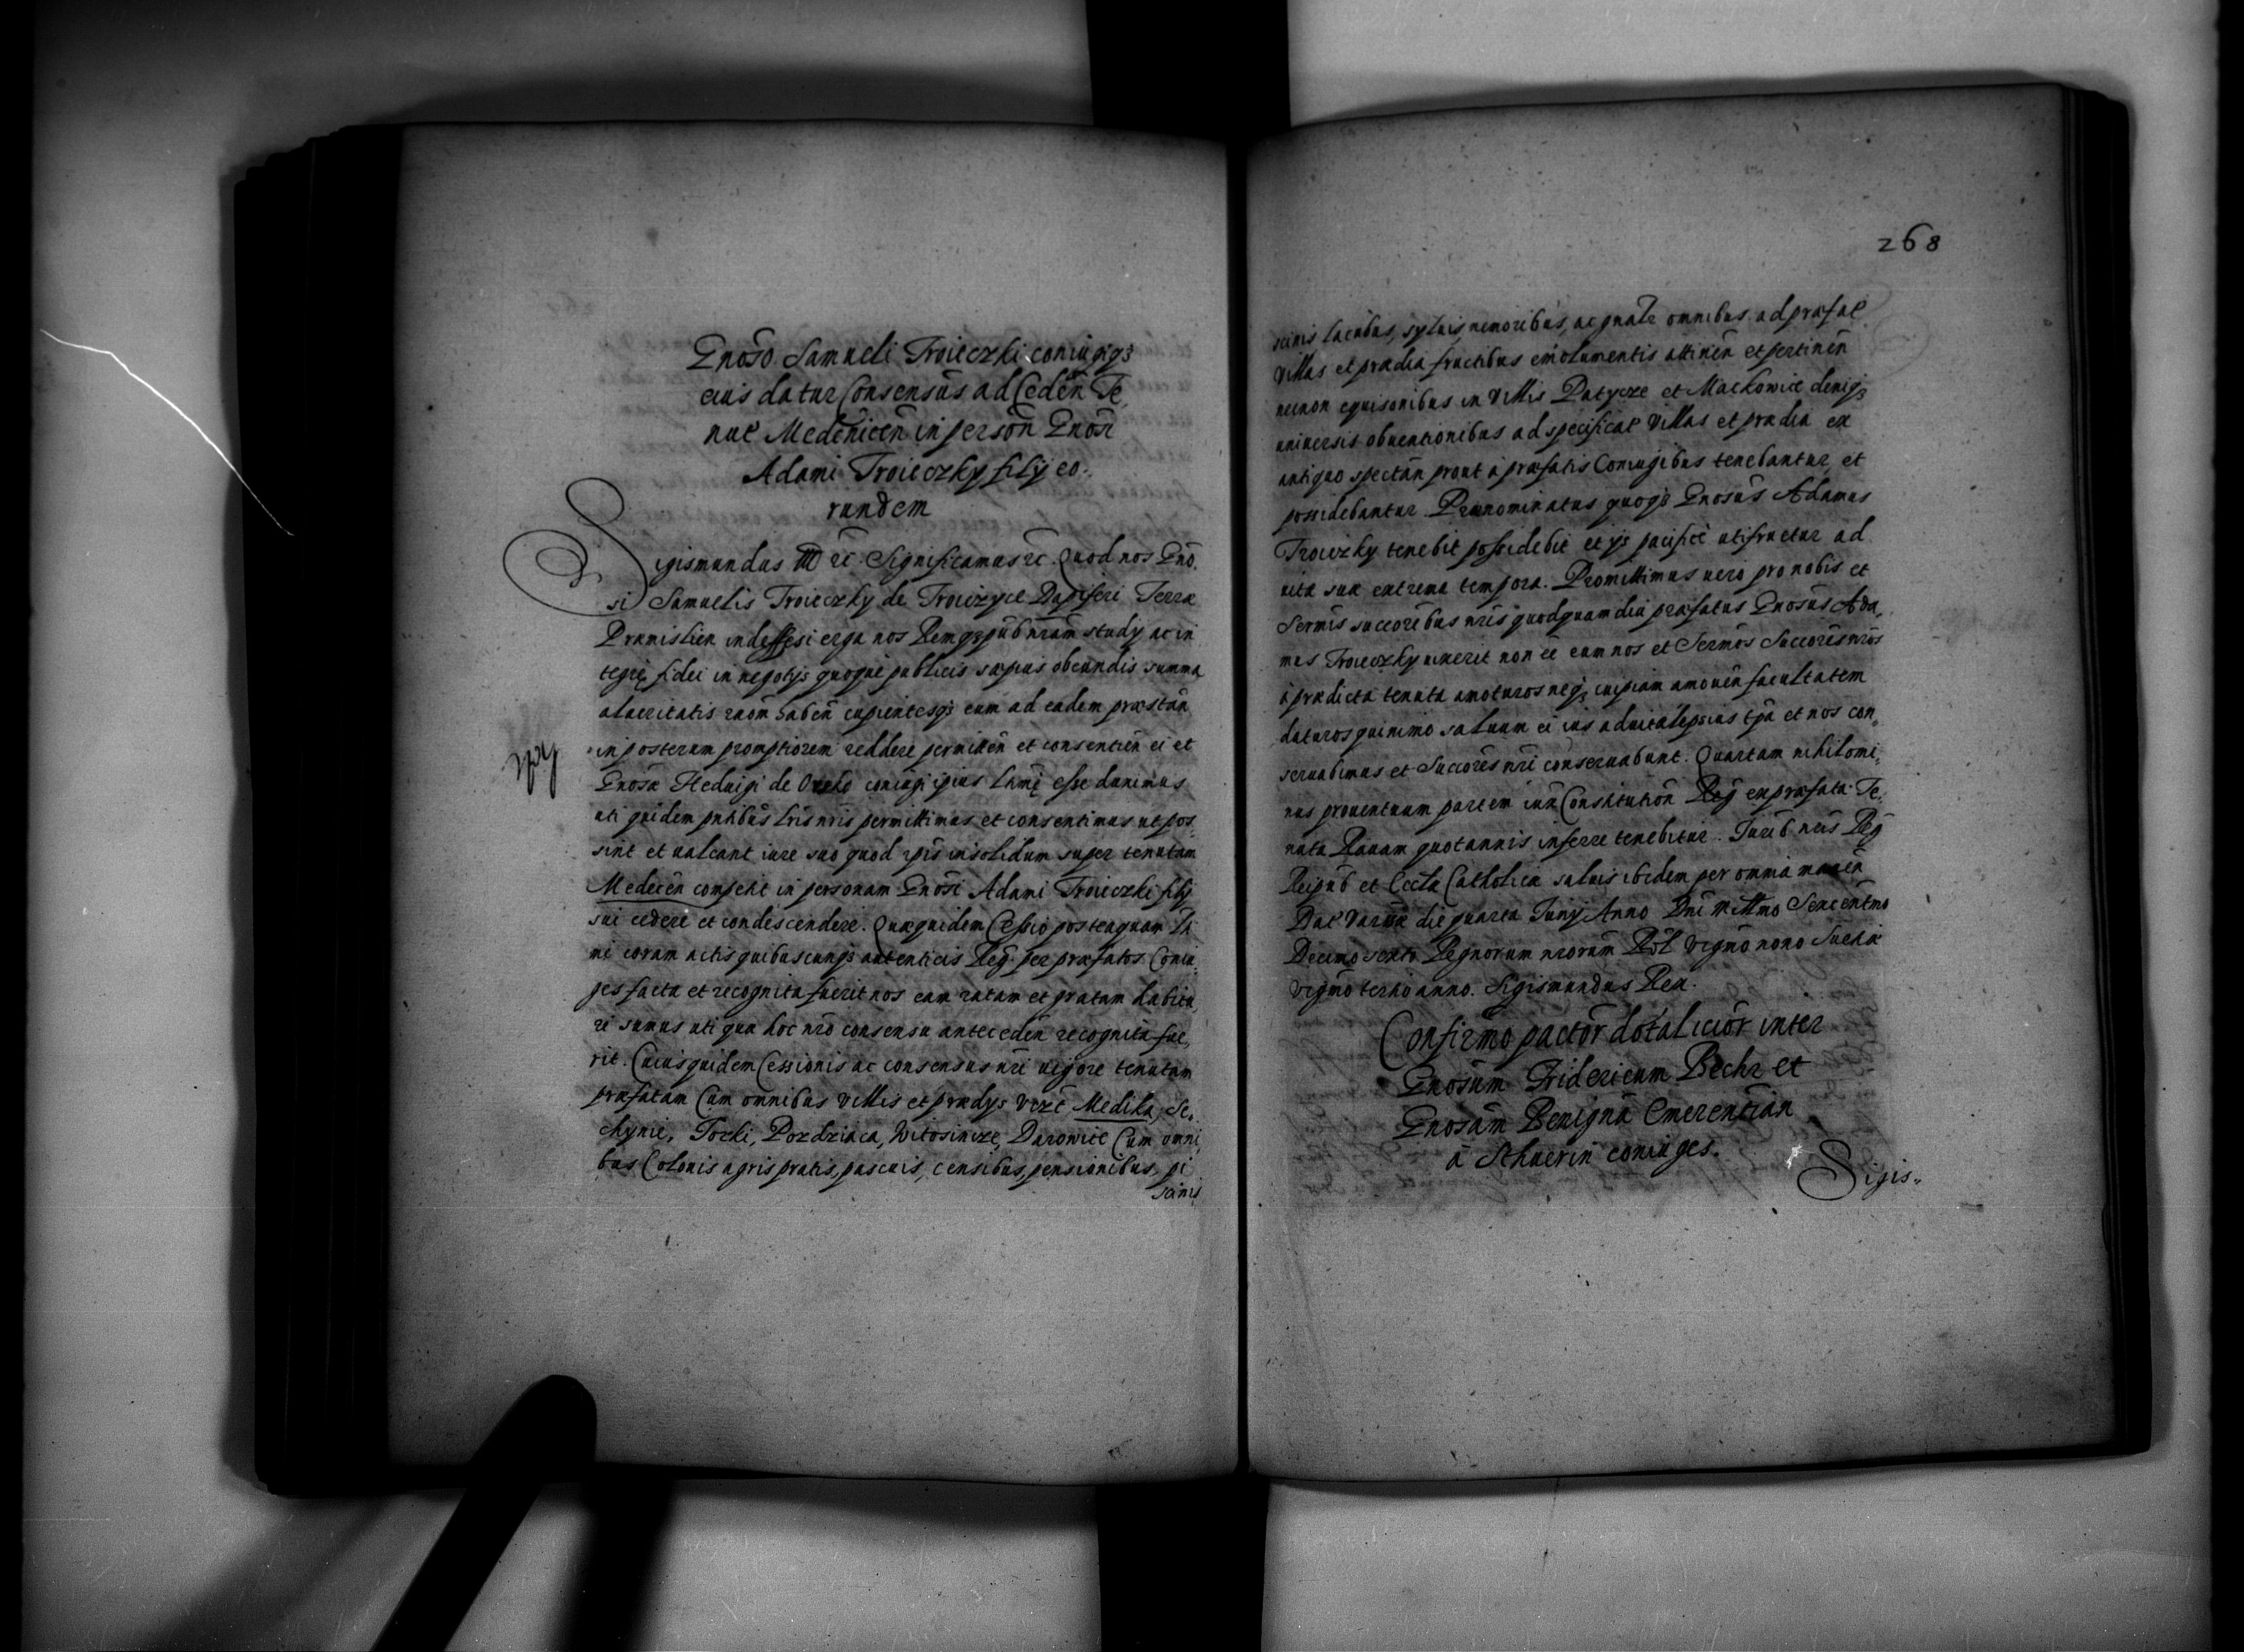 Gnoso Samueli Troieczki coniugiq₃
eius datur Consensus ad Cedeñ Te,
nut̃ Medeniceñ in persoñ Gnosi
Adami Troieczky filij eo.
rundem
Sigismundus III ẽc Significamus ẽc. Quod nos Gno.
si Samuelis Troieczky de Troiczyce Dapiferi Terræ
Præmislieñ indeffesi erga nos Remq₃ pub nrãm studij ac in
tegrę fidei in negotijs quoque publicis sæpius obeundis summa
alacritatis raõn habeñ cupientesq₃ eum ad eadem præstañ
in posterum promptiorem reddere permitteñ et consentieñ ei et
Gnosæ Heduigi de coniugi ipius lñmę esse duximus
uti quidem pñtibus lr̃is nr̃is permittimus et consentimus ut pos,
sint et ualeant iure suo quod ipis insolidum super tenutam
Medeceñ competit in personam Gnosi Adami Troieczki filij
sui cedere et condescendere. Quæquidem Cessio posteaquam
mi coram actis quibuscunq₃ autenticis Reg. per præfatos Coniu,
ges facta et recognita fuerit nos eam ratam et gratam habitu,
ri sumus uti quæ hoc nrõ consensu antecedeñ recognita fue,
rit. Cuiusquidem Cessionis ac consensus nrĩ uigore tenutam
præfatam Cum omnibus Villis et prædijs Vizt Medika, Se.
chynie, Torki, Pozdziaca, Witosincze, Darowice Cum omni,
bus Colonis agris pratis, pascuis, censibus, pensionibus, pi
scinis
268
scinis lacubus, syluis nemoribus, ac gñalr omnibus ad præfat̃
Villas et prædia fructibus emolumentis attineñ et pertineñ
necnon equisonibus in Villis Patycze et Mackowice deniq₃
uniuersis obuentionibus ad specificat̃ Villas et prædia ex
antiquo spectañ prout à præfatis Coniugibus tenebantur, et
possidebantur. Prænominatus quoq₃ Gnosus Adamus
Troiczky tenebit possidebit et ijs pacificè utifruetur ad
uitæ suæ extrema tempora. Promittimus uero pro nobis et
Sermis succoribus nr̃is quodquamdiu præfatus Gnosus Ada,
mus Troieczky uixerit non eẽ eum nos et Sermos Succores nrõs
à prædicta tenuta amoturos neq₃ cuipiam amoueñ facultatem
daturos quinimo saluum ei ius aduitale ipsius tpã et nos con,
seruabimus et Succores nrĩ conseruabunt. Quartam nihilomi,
nus prouentuum partem iuxta Constitutioñ Reg̃ ex præfata Te,
nuta Rauam quotannis inferre tenebitur. Jurib nr̃is Reg̃
Reipub et Eccla Catholicæ saluis ibidem per omnia maneñ
Dat̃ Varuæ die quarta Junij Anno Dni Millmo Sexcentmo
Decimo sexto Regnorum nrorum Pol̃ Vigmo nono Sueciæ
Vigmo tertio anno. Sigismundus Rex.
Confirmo pactor dotalicior inter
Gnosum Fridericum Bechr et
Gnosam Benignã Emerentiãn
à Schuerin coniuges.
Sigis.